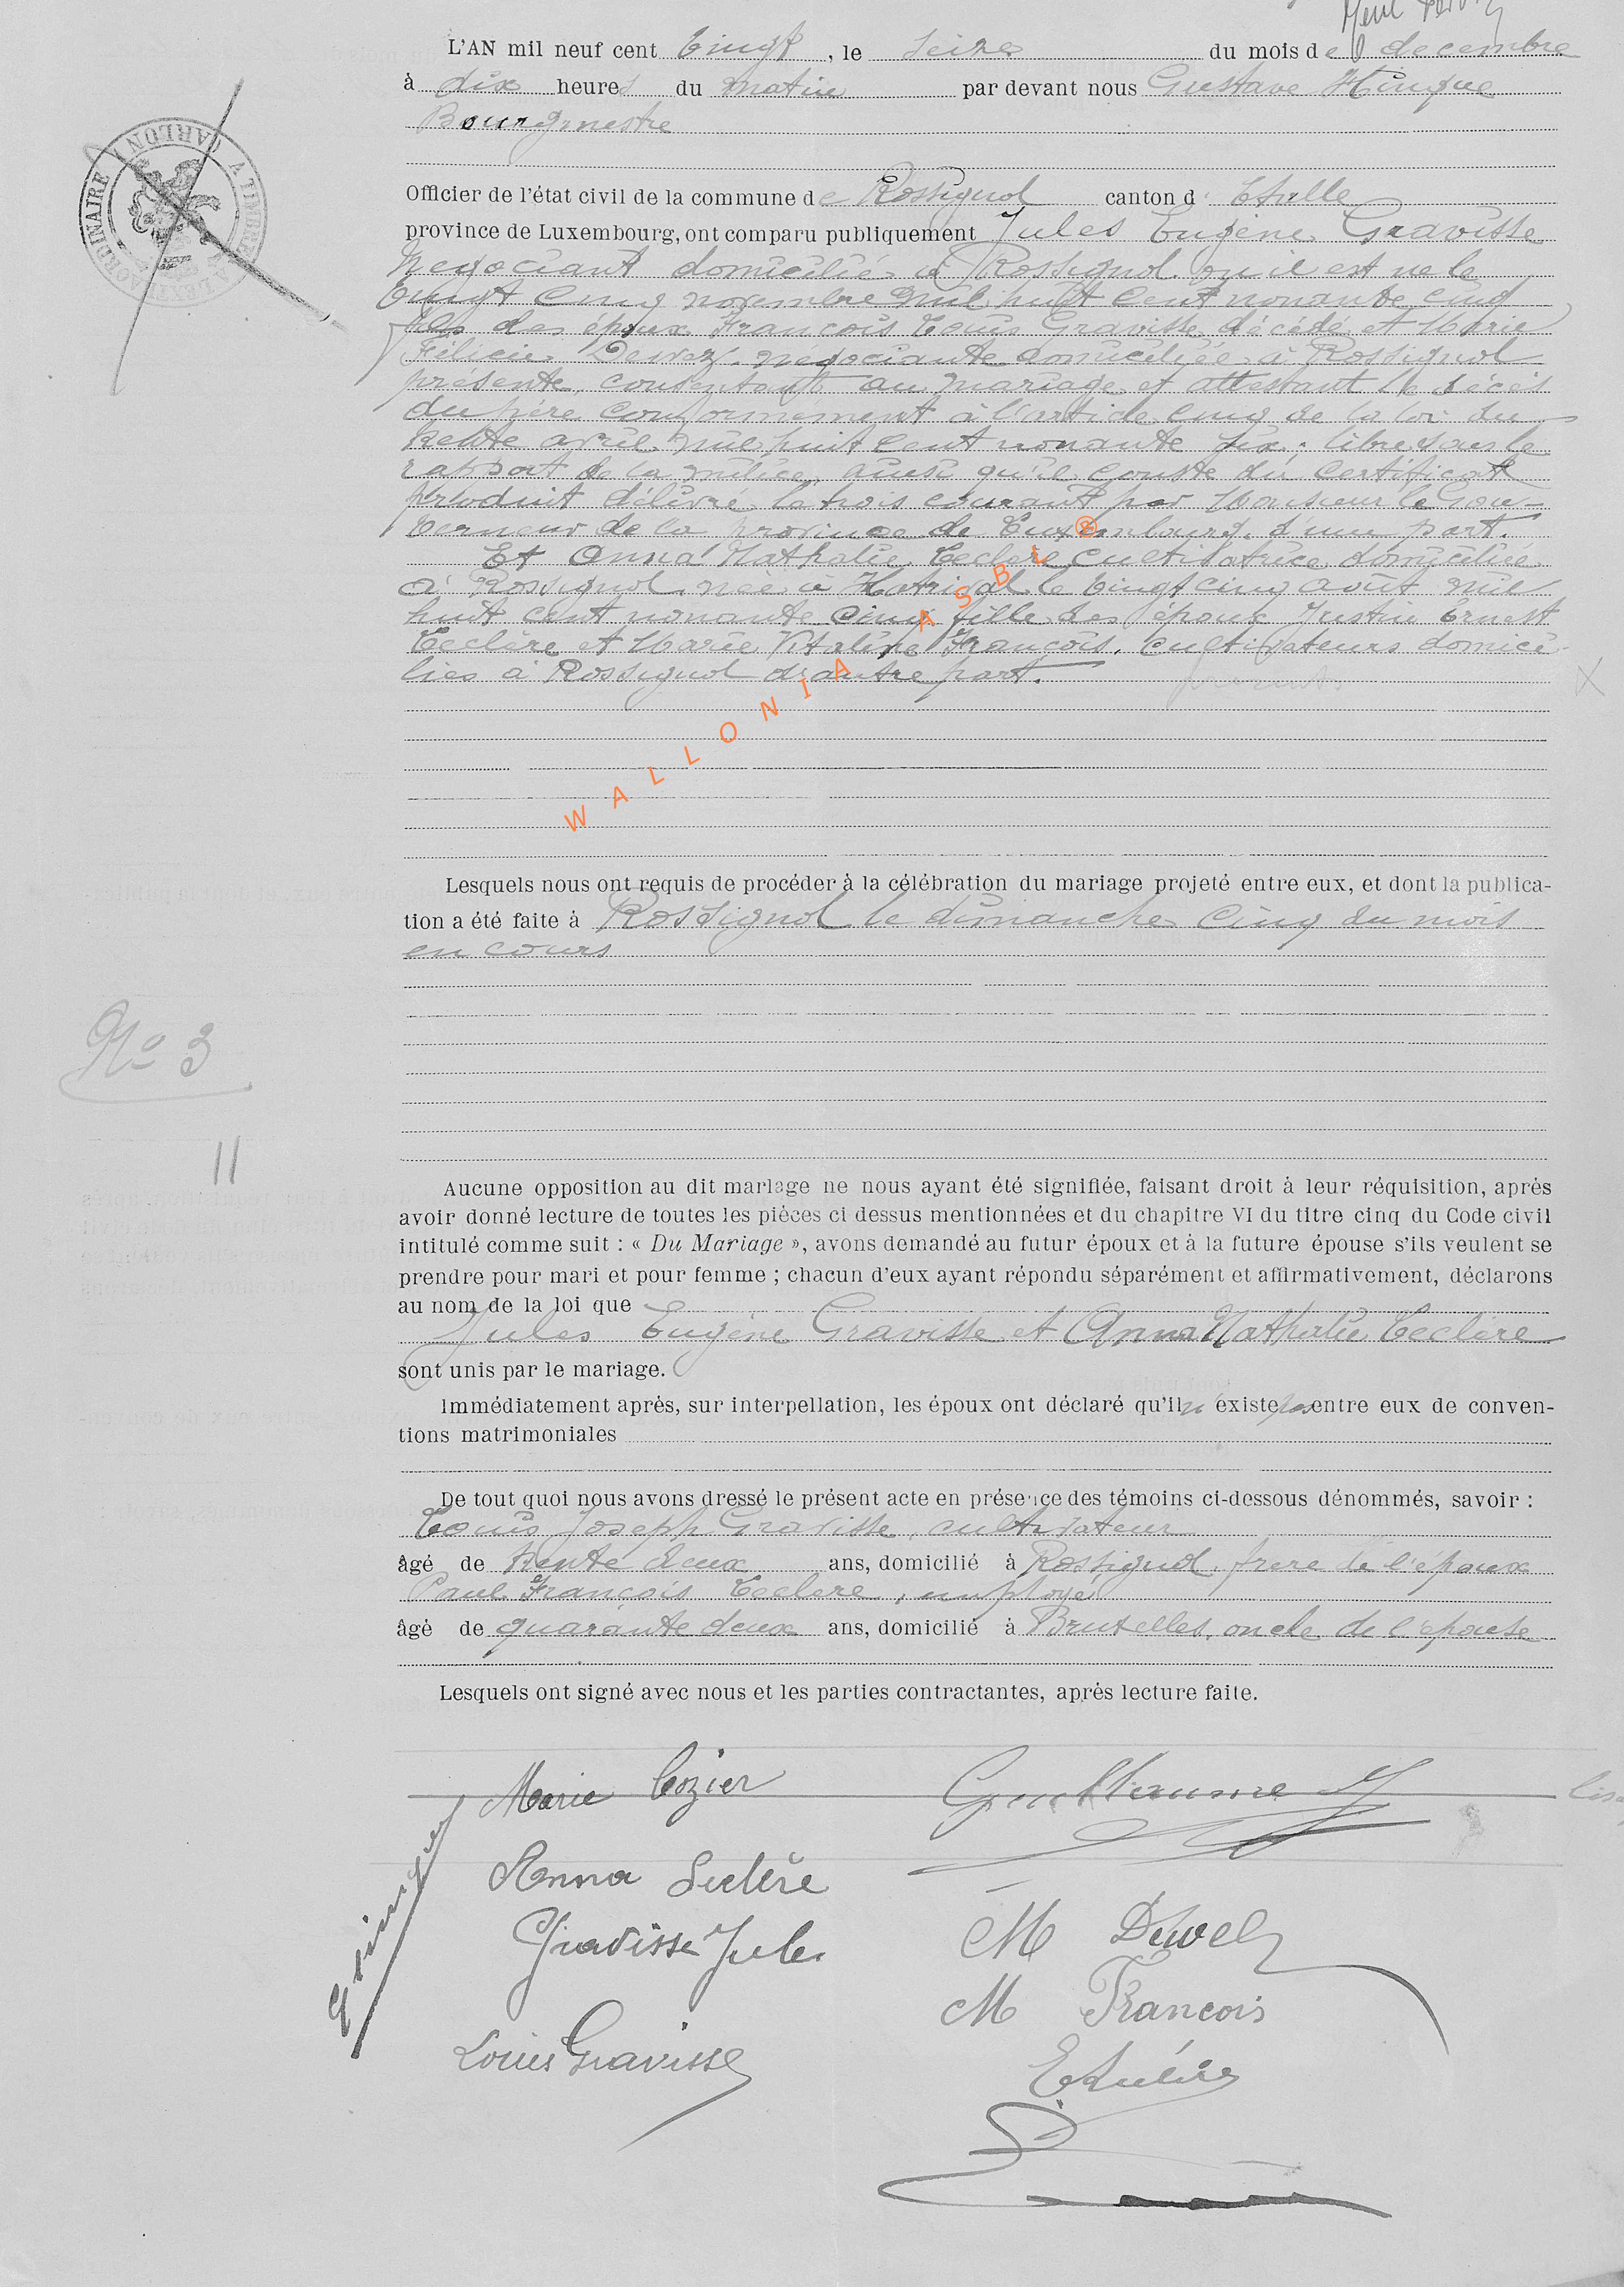 L'AN mil neuf cent vingt, le seize du mois de décembre
à dix heures du matin par devant nous Gustave Hinque
Bourgmestre
Officier de l'état civil de la commune de Rossignol canton d' Etalle
province de Luxembourg, ont comparu publiquement Jules Eugène Gravisse
négociant domicilié à Rossignol où il est né le
vingt cinq novembre mil huit cent nonante cinq
fils des époux François Louis Gravisse décédé et Marie
Félicie négociante domiciliée à Rossignol
présente, consentant au mariage et attestant le décès
du père conformément à l'article cinq de la loi du
trente avril mil huit cent nonante six; libre sous le
rapport de la milice, ainsi qu'il conste du certificat
produit délivré le trois courant par Monsieur le Gou-
verneur de la province de Luxembourg, d'une part.
Et Anna Nathalie Leclère cultivatrice domiciliée
à Rossignol, née à Hatrival le vingt cinq août mil
huit cent nonante cinq fille des époux Justin Ernest
Leclère et Marie Vitaline François, cultivateurs domici-
liés à Rossignol d'autre part. présents
WALLONIA ASBL ®
Lesquels nous ont requis de procéder à la célébration du mariage projeté entre eux, et dont la publica-
tion a été faite à Rossignol le dimanche cinq du mois
en cours
No 3
11
Aucune opposition au dit mariage ne nous ayant été signifiée, faisant droit à leur réquisition, après
avoir donné lecture de toutes les pièces ci dessus mentionnées et du chapitre VI du titre cinq du Code civil
intitulé comme suit : « Du Mariage », avons demandé au futur époux et à la future épouse s'ils veulent se
prendre pour mari et pour femme ; chacun d'eux ayant répondu séparément et affirmativement, déclarons
au nom de la loi que
Jules Eugène Gravisse et Anna Nathalie Leclère
sont unis par le mariage.
Immédiatement après, sur interpellation, les époux ont déclaré qu'il n'existe pas entre eux de conven-
tions matrimoniales
De tout quoi nous avons dressé le présent acte en présence des témoins ci-dessous dénommés, savoir :
Louis Joseph Gravisse, cultivateur
âgé de trente deux ans, domicilié à Rossignol, frère de l'époux
Paul François Leclère, employé
âgé de quarante deux ans, domicilié à Bruxelles, oncle de l'épouse
Lesquels ont signé avec nous et les parties contractantes, après lecture faite.
Marie Lozier Guillaume J
Anna Leclère
Gravisse Jules M Dewez
M François
Louis Gravisse E Leclère